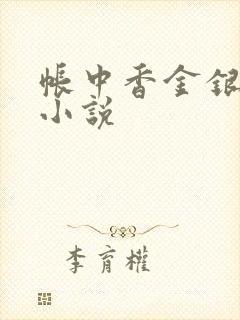 帳中香金銀
小說
李育權